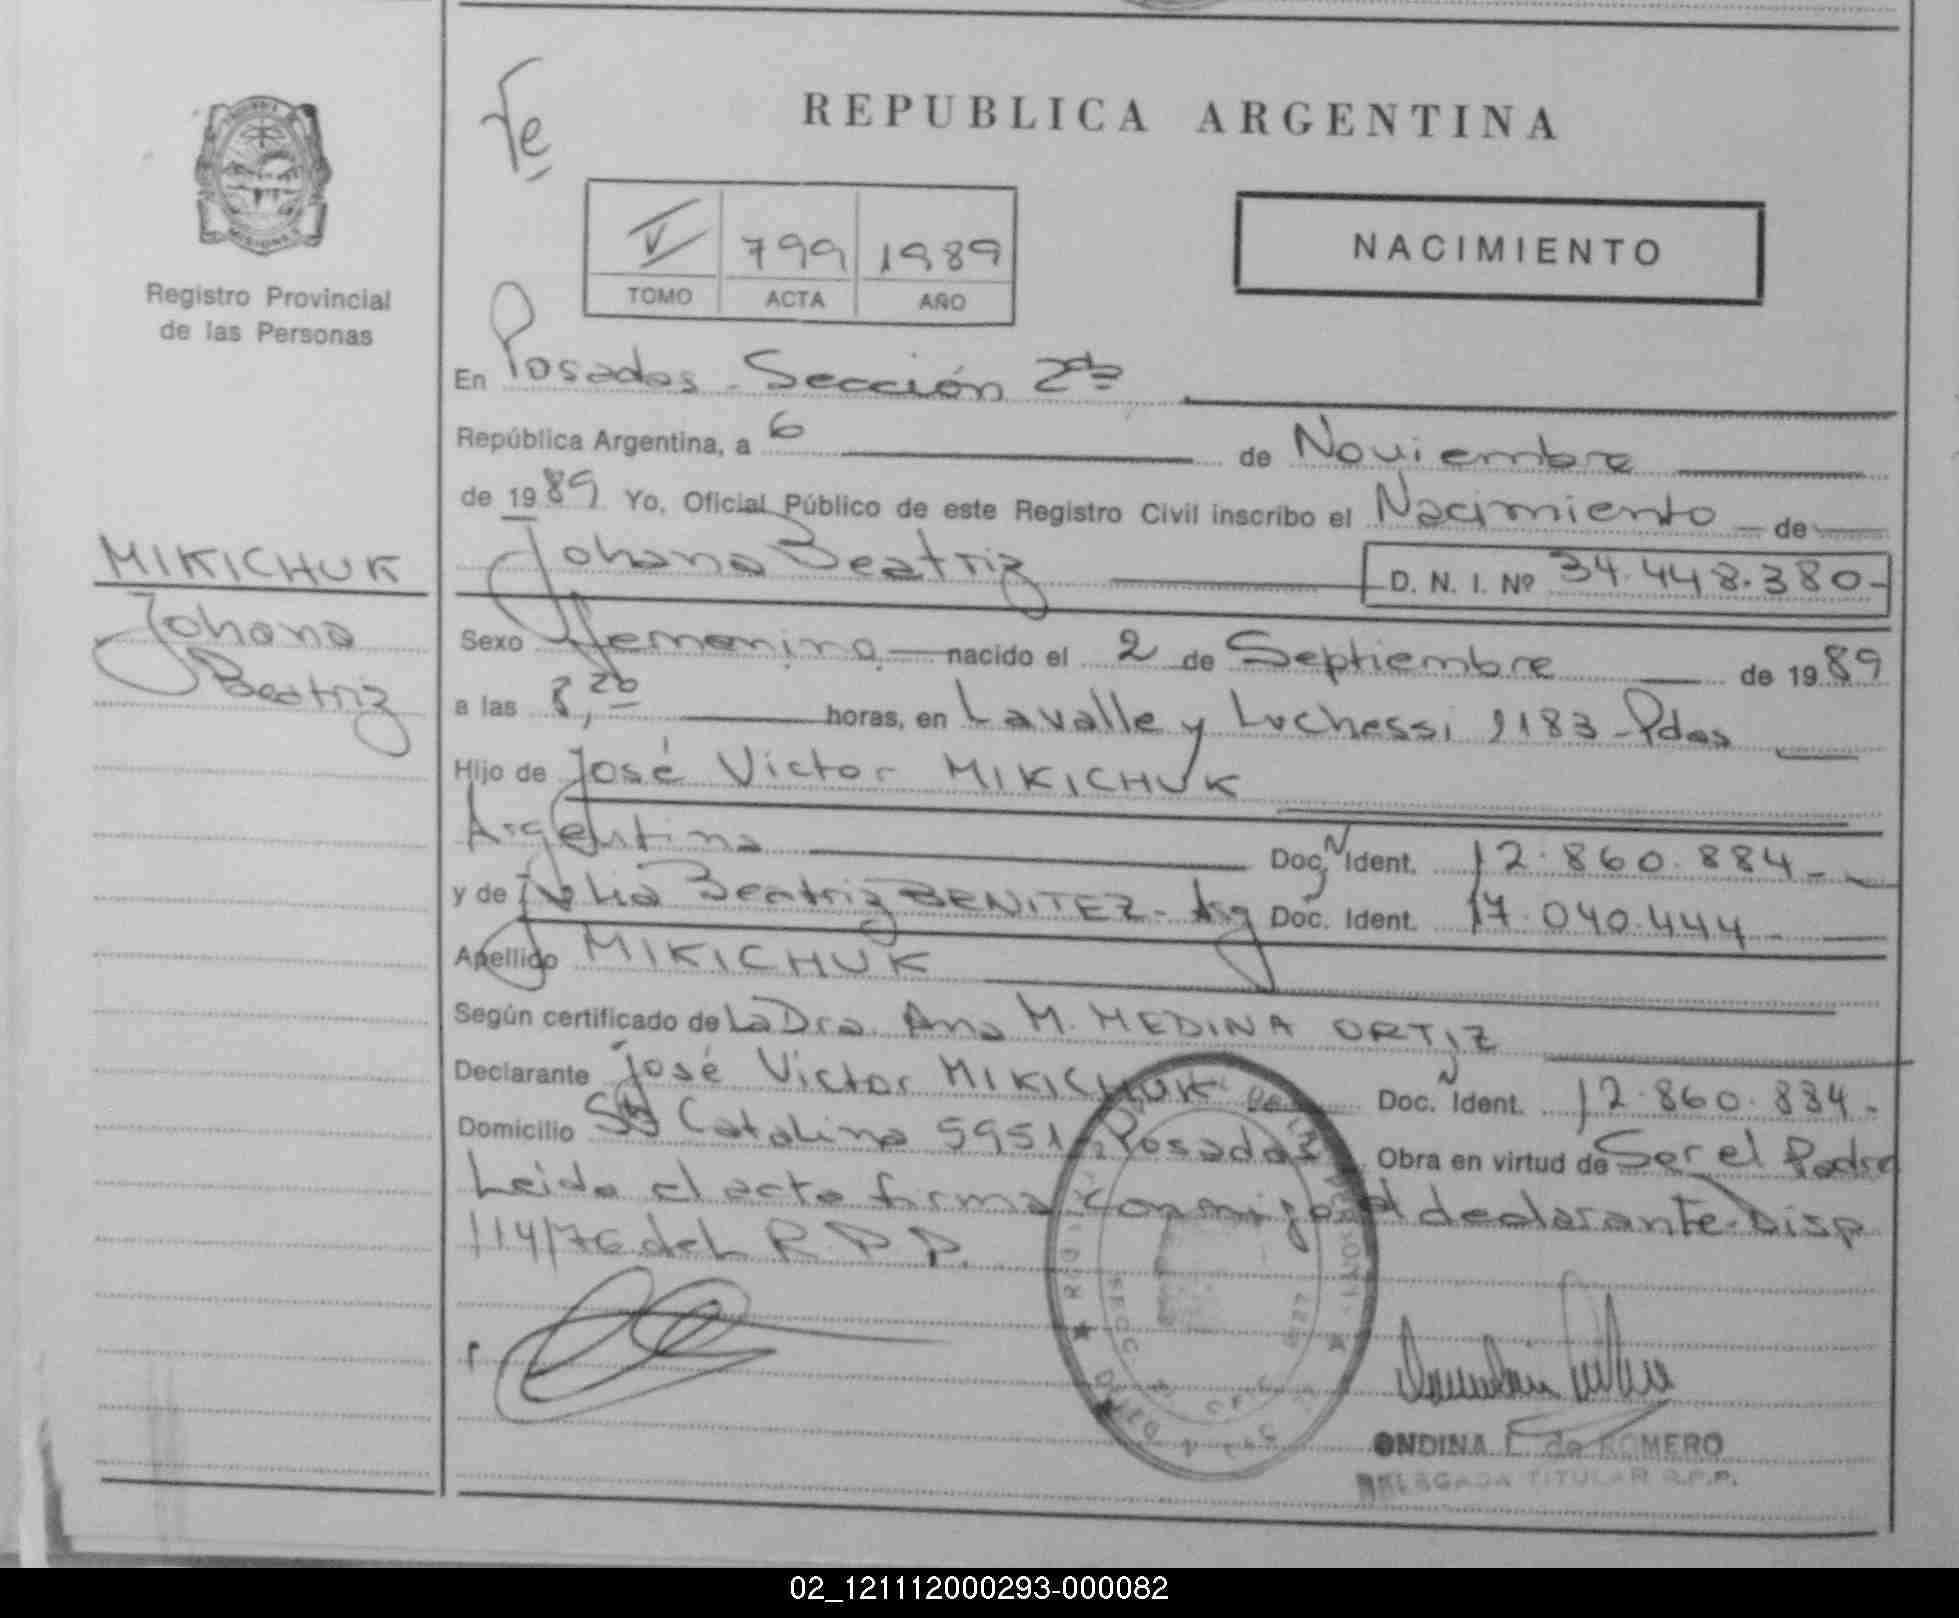 Fe
REPUBLICA ARGENTINA
V 799 1989
TOMO ACTA AÑO
NACIMIENTO
MISIONES
Registro Provincial
de las Personas
En Posadas - Sección 2da
República Argentina, a 6 de Noviembre
de 1989 Yo, Oficial Público de este Registro Civil inscribo el Nacimiento de
MIKICHUK
Johana
Beatriz
Johana Beatriz D. N. I. Nº 34.448.380-
Sexo femenino nacido el 2 de Septiembre de 1989
a las 8,20 horas, en Lavalle y Luchessi 1183 - Pdas
Hijo de José Victor MIKICHUK
Argentina Doc. Ident. 12.860.884-
y de Julia Beatriz BENITEZ - Arg Doc. Ident. 17.040.444-
Apellido MIKICHUK
Según certificado de La Dra. Ana M. MEDINA ORTIZ
Declarante José Victor MIKICHUK Doc. Ident. 12.860.884-
Domicilio Sta Catalina 5951 - Posadas Obra en virtud de Ser el Padre
Leida el acta firma conmigo el declarante. Disp
114/76 del R.P.P.
ONDINA E. de ROMERO
DELEGADA TITULAR R.P.P.
02_121112000293-000082